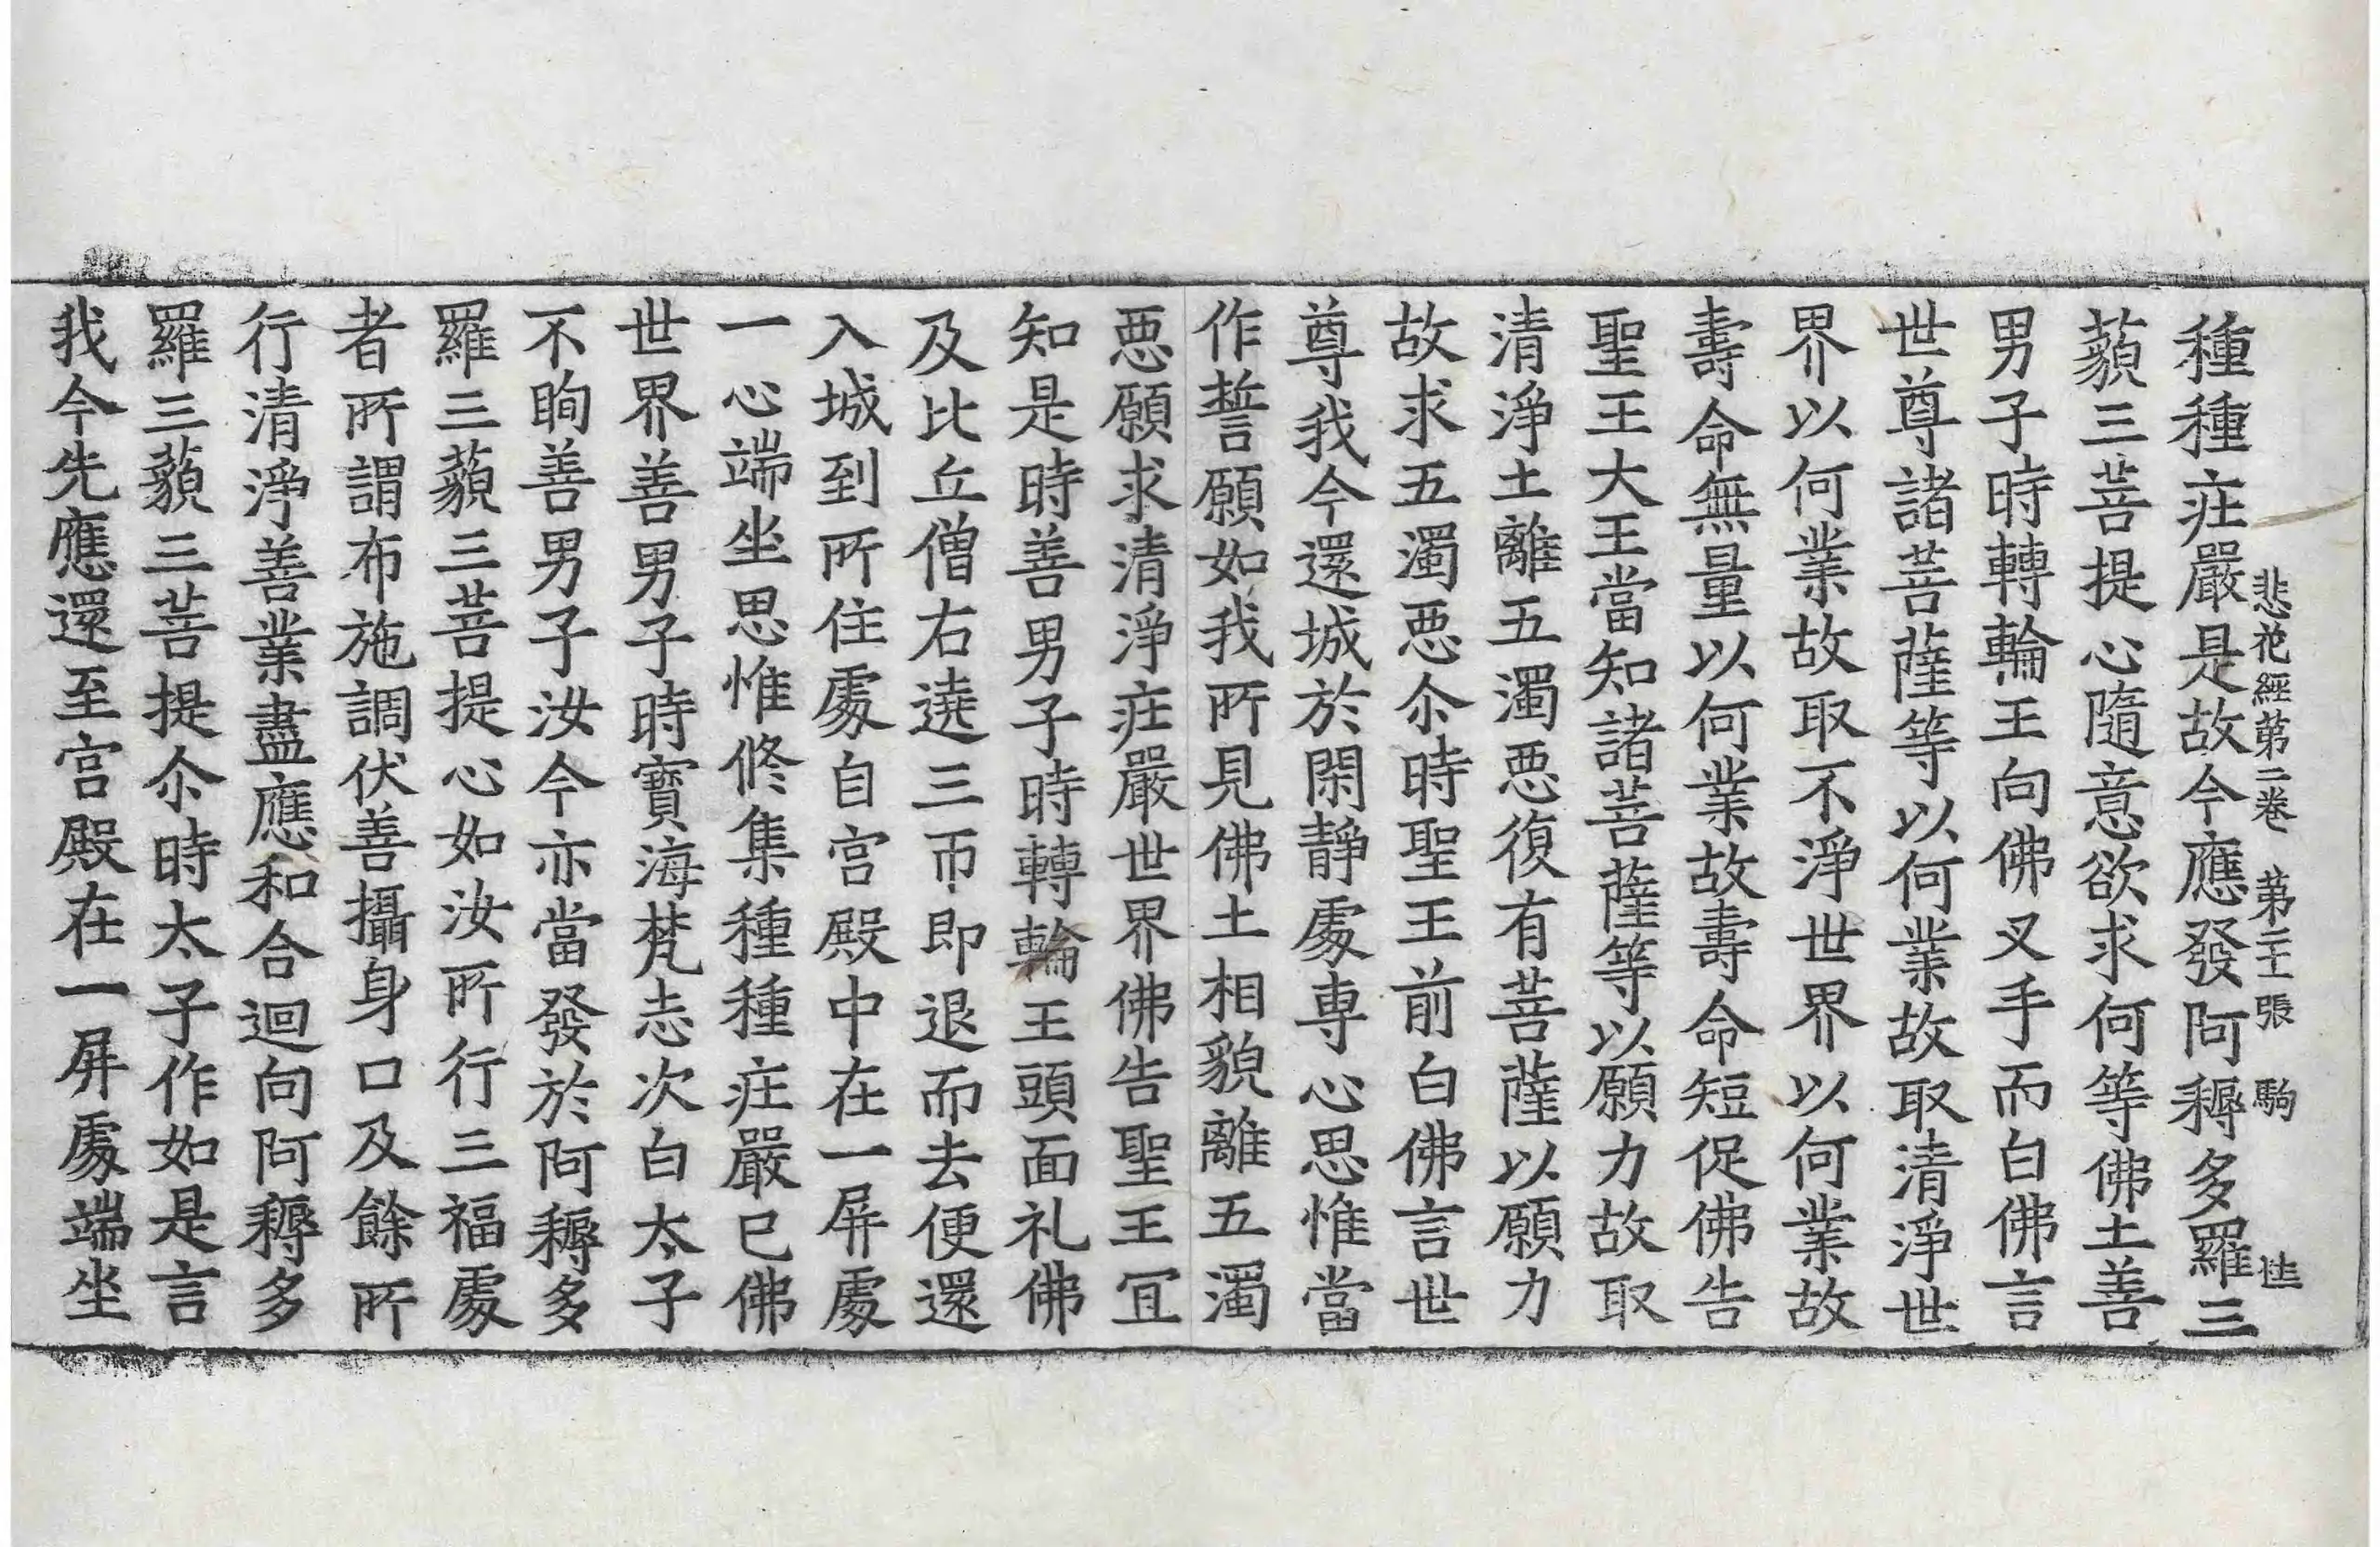 悲花經第二卷 第二十張 駒
種種疘嚴是故今應發阿耨多羅三
藐三菩提心隨意欲求何等佛土善
男子時轉輪王向佛叉手而白佛言
世尊諸菩薩等以何業故取清淨世
界以何業故取不淨世界以何業故
壽命無量以何業故壽命短促佛告
聖王大王當知諸菩薩等以願力故取
清淨土離五濁惡復有菩薩以願力
故求五濁惡尒時聖王前白佛言世
尊我今還城於閑靜處專心思惟當
作誓願如我所見佛土相貌離五濁
惡願求清淨疘嚴世界佛告聖王冝
知是時善男子時轉輪王頭面礼佛
及比丘僧右遶三帀即退而去便還
入城到所住處自宮殿中在一屏處
一心端坐思惟修集種種疘嚴巳佛
世界善男子時寶海梵志次白太子
不眴善男子汝今亦當發於阿耨多
羅三藐三菩提心如汝所行三福處
者所謂布施調伏善攝身口及餘所
行清淨善業盡應和合迴向阿耨多
羅三藐三菩提尒時太子作如是言
我今先應還至宮殿在一屏處端坐